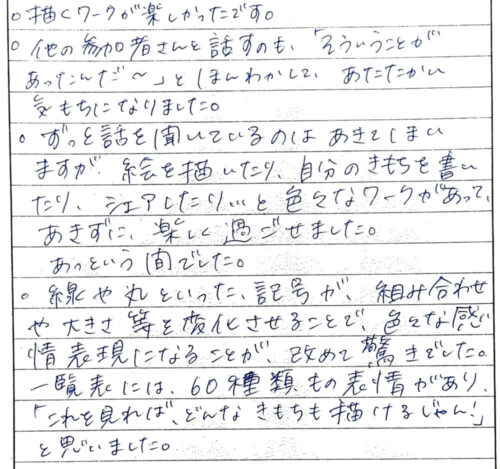 ○描くワークが楽しかったです。
○他の参加者さんと話すのも、「そういうことが
あったんだ〜」とほんわかして、あたたかい
気もちになりました。
○ずっと話を聞いているのはあきてしまい
ますが、絵を描いたり、自分のきもちを書い
たり、シェアしたり…と色々なワークがあって、
あきずに、楽しく過ごせました。
あっという間でした。
○線や丸といった、記号が、組み合わせ
や大きさ等を変化させることで、色々な感
情表現になることが、改めて驚きでした。
一覧表には、60種類もの表情があり、
「これを見れば、どんなきもちも描けるじゃん!」
と思いました。